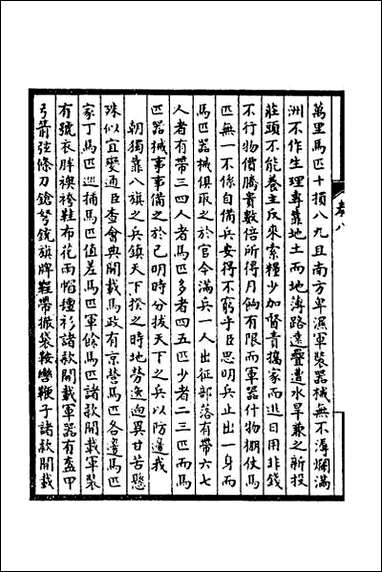 萬里馬匹十損八九且南方卑濕軍裝器械無不薄爛滿
洲不作生理專靠地土而地薄路遠疊遭水旱兼之新投
莊頭不能養主反來索糧少加督責攜家而逃日用非錢
不行物價騰貴數倍所得月餉有限而軍器什物棚仗馬
匹無一不係自備兵安得不窮乎臣思明兵止出一身而
馬匹器械俱取之於官今滿兵一人出征部落有帶六七
人者有帶三四人者馬匹多者四五匹少者二三匹而馬
匹器械事事備之於己明時分拔天下之兵以防邊我
朝獨靠八旗之兵鎮天下揆之時地勞逸迥異甘苦懸
殊似宜變通臣查會典開載馬政有京營馬匹各邊馬匹
家丁馬匹巡捕馬匹值差馬匹軍餘馬匹諸款開載軍裝
有號衣胖襖袴鞋布花雨帽氊衫諸款開載軍器有盔甲
弓箭弦條刀鎗弩銃旗牌鞓帶撒袋鞍轡鞭子諸款開載
卷八